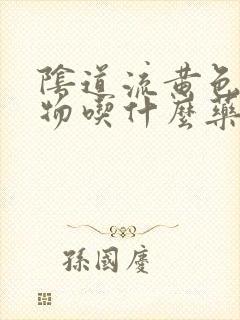 陰道流黄色
物喫什麼藥
孫國慶